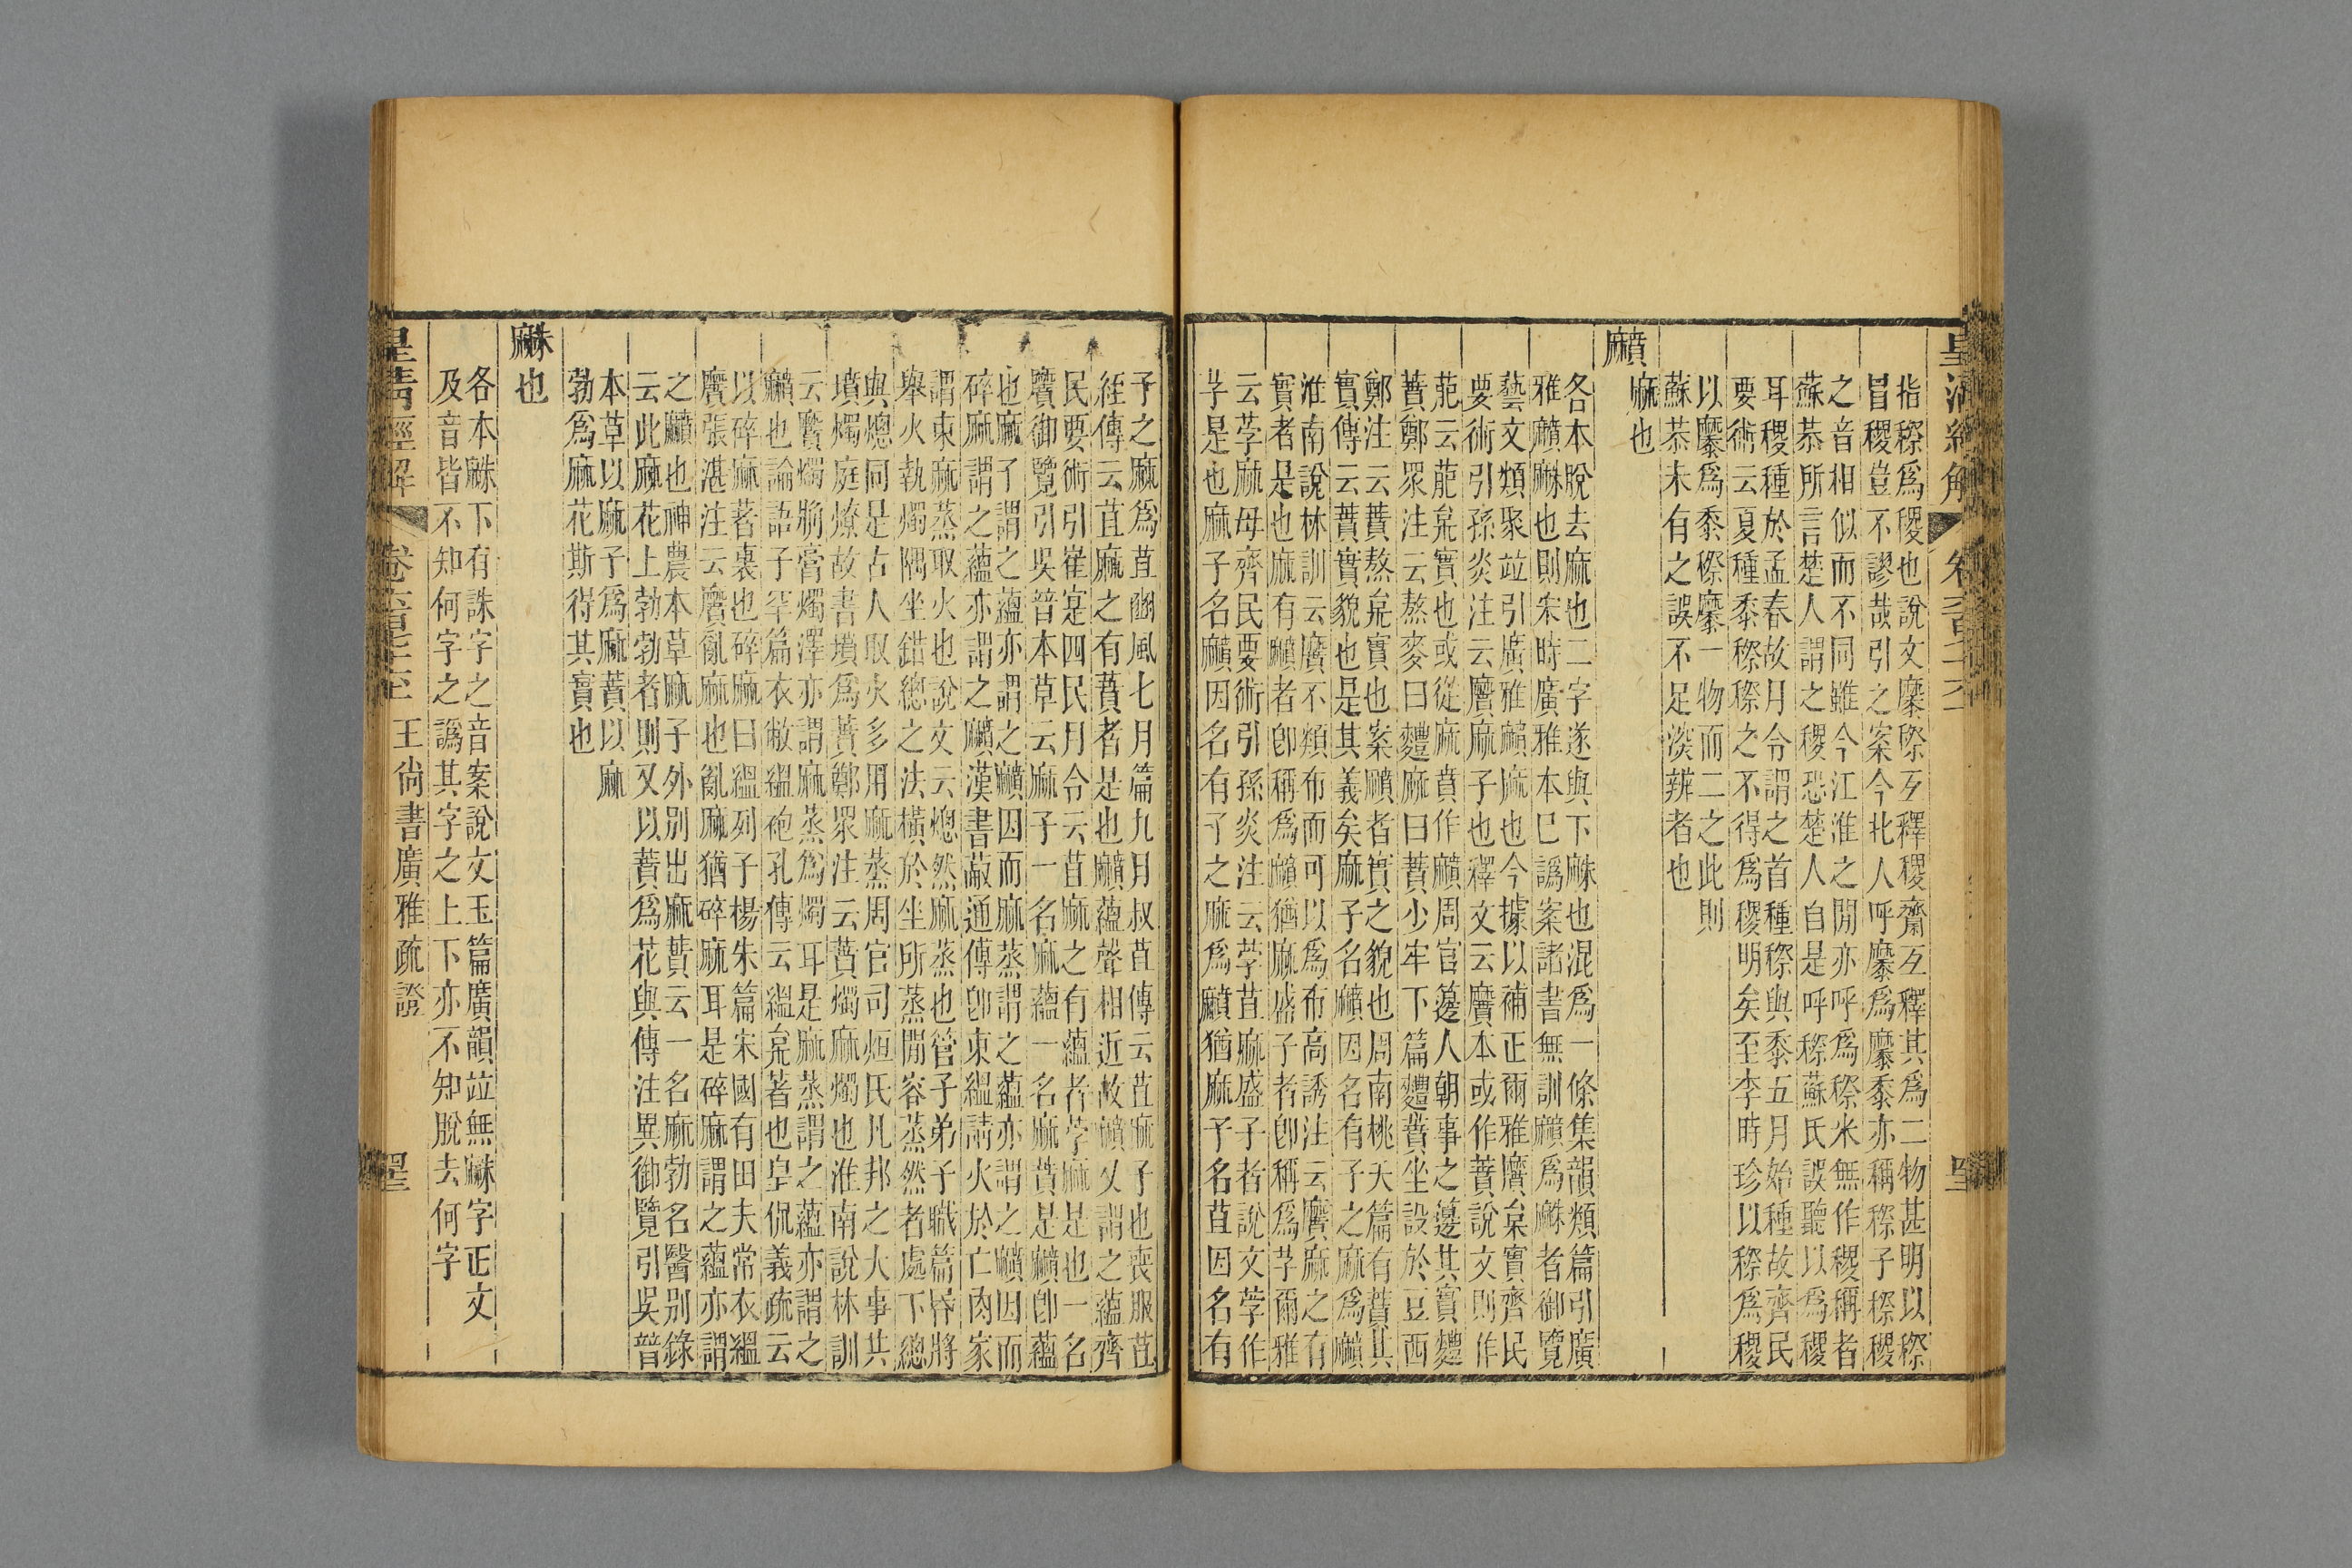 指穄爲稷也說文穈穄互釋稷齋互釋其爲二物甚明以穄
冒稷豈不謬哉引之案今北人呼穈爲穈黍亦稱穄子穄稷
之音相似而不同雖今江淮之閒亦呼爲穄米無作稷稱者
蘇恭所言楚人謂之稷恐楚人自是呼穄蘇氏誤聽以爲稷
耳稷種於孟春故月令謂之首種穄與黍五月始種故齊民
要術云夏種黍穄穄之不得爲稷明矣至李時珍以穄爲稷
以穈爲黍穄穈一物而二之此則
蘇恭未有之誤不足深辨者也
黂
麻也
各本脫去麻也二字遂與下䵇也混爲一條集韻類篇引廣
雅黂䵇也則宋時廣雅本已譌案諸書無訓黂爲䵇者御覽
藝文類聚竝引廣雅黂麻也今據以補正爾雅黂枲實齊民
要術引孫炎注云黂麻子也釋文云黂本或作蕡說文則作
萉云萉枲實也或從麻賁作黂周官籩人朝事之籩其實麷
蕡鄭眾注云熬麥曰麷麻曰蕡少牢下篇麷蕡坐設於豆西
鄭注云蕡熬枲實也案黂者實之貌也周南桃夭篇有蕡其
實傳云蕡實貌也是其義矣麻子名黂因名有子之麻爲黂
淮南說林訓云黂不類布而可以爲布高誘注云黂麻之有
實者是也麻有黂者卽稱爲黂猶麻盛子者卽稱爲芓爾雅
云芓麻母齊民要術引孫炎注云芓苴麻盛子者說文芓作
芓是也麻子名黂因名有子之麻爲黂猶麻子名苴因名有
子之麻爲苴豳風七月篇九月叔苴傳云苴麻子也喪服苴
絰傳云苴麻之有蕡者是也黂蘊聲相近故黂又謂之蘊齊
民要術引崔寔四民月令云苴麻之有蘊者芓麻是也一名
黂御覽引吳普本草云麻子一名麻蘊一名麻蕡是黂卽蘊
也麻子謂之蘊亦謂之黂因而麻蒸謂之蘊亦謂之黂因而
碎麻謂之蘊亦謂之黂漢書蒯通傳卽束縕請火於亡肉家
謂束麻蒸取火也說文云熜然麻蒸也管子弟子職篇昏將
舉火執燭隅坐錯總之法橫於坐所蒸閒容蒸然者處下總
與熜同是古人取火多用麻蒸周官司烜氏凡邦之大事共
墳燭庭燎故書墳爲蕡鄭眾注云蕡燭麻燭也淮南說林訓
云黂燭捔膏燭澤亦謂麻蒸爲燭耳是麻蒸謂之蘊亦謂之
黂也論語子罕篇衣敝縕袍孔傳云縕枲著也皇侃義疏云
以碎麻著裏也碎麻曰縕列子楊朱篇宋國有田夫常衣縕
黂張湛注云黂亂麻也亂麻猶碎麻耳是碎麻謂之蘊亦謂
之黂也神農本草麻子外別出麻蕡云一名麻勃名醫別錄
云此麻花上勃勃者則又以蕡爲花與傳注異御覽引吳普
本草以麻子爲麻蕡以麻
勃爲麻花斯得其實也
䵇也
各本䵇下有誅字之音案說文玉篇廣韻竝無䵇字正文
及音皆不知何字之譌其字之上下亦不知脫去何字
王尚書廣雅疏證